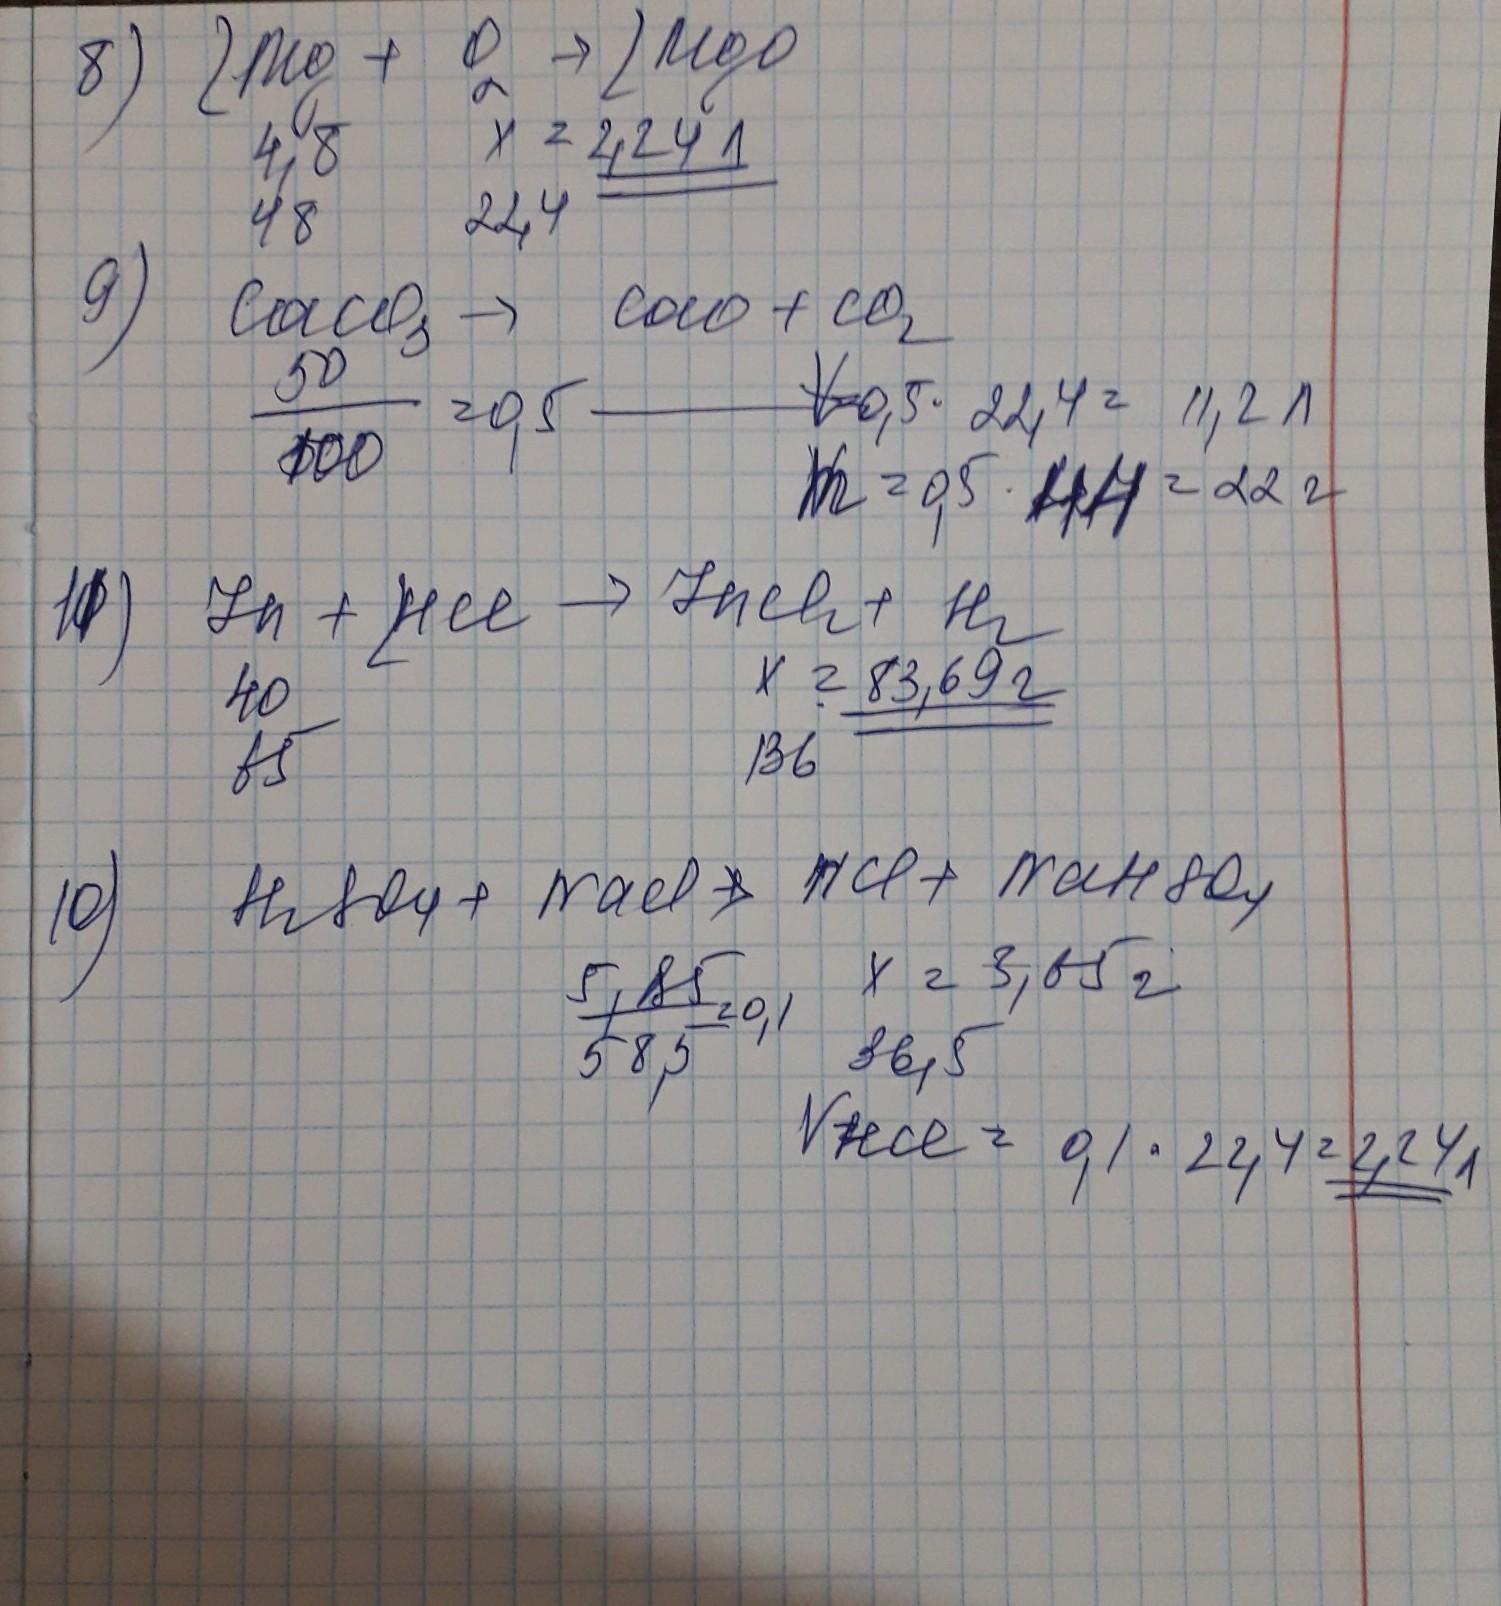 8) 2Mg + O2 → 2MgO
4,8 x = 2,24 л
48 22,4
9) CaCO3 → CaO + CO2
50/100 = 0,5 — V=0,5 · 22,4 = 11,2 л
m = 0,5 · 44 = 22 г
11) Zn + 2HCl → ZnCl2 + H2
40 x = 83,69 г
65 136
10) H2SO4 + NaCl → HCl + NaHSO4
5,85/58,5 = 0,1 x = 3,65 г
36,5
VHCl = 0,1 · 22,4 = 2,24 л